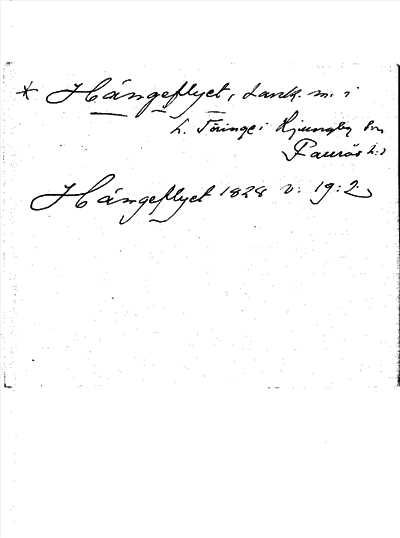 * Hångeflyet, sank m. i
L. Töringe i Kjungby sn
Faurås h:d
Hångeflyet 1828 v: 19:2